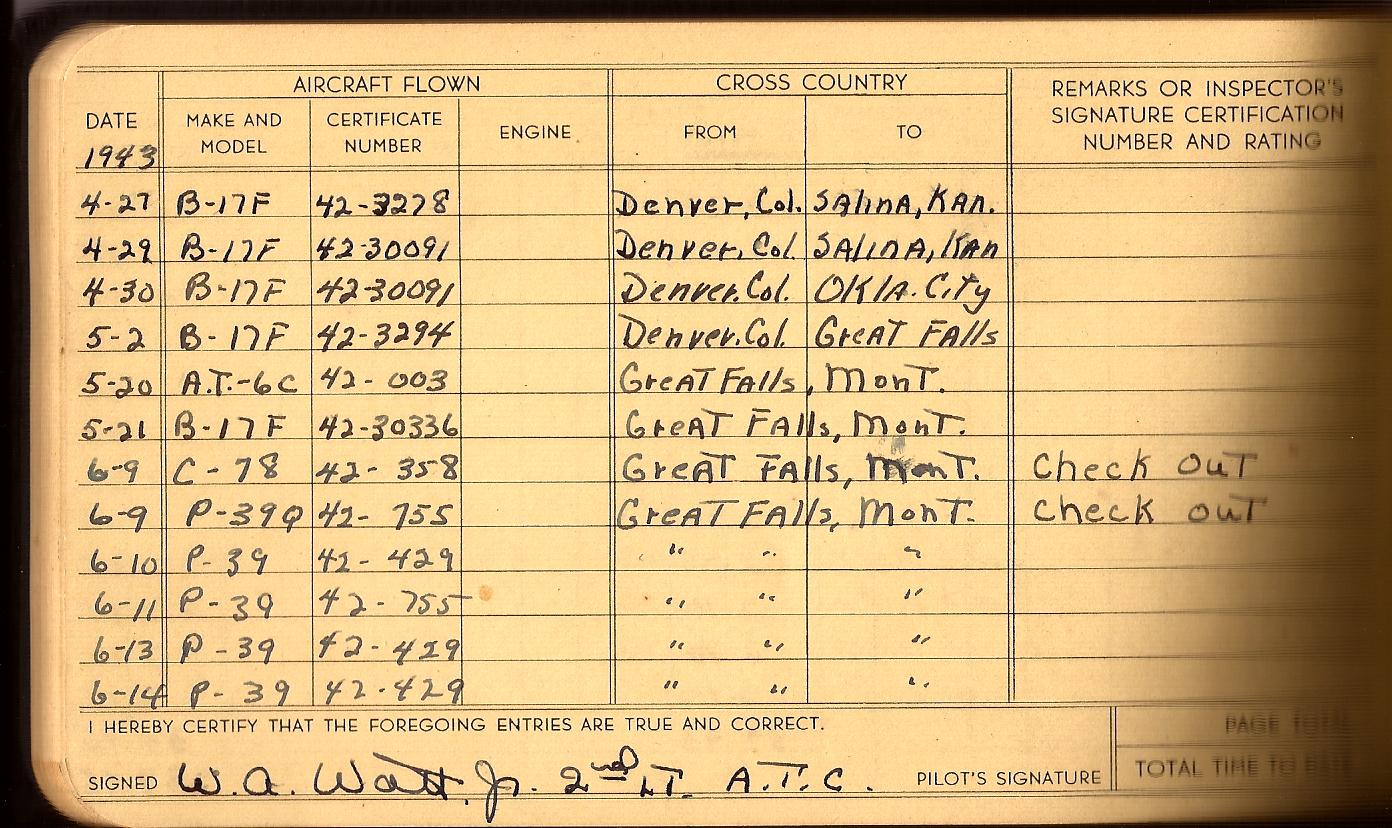 AIRCRAFT FLOWN CROSS COUNTRY REMARKS OR INSPECTOR'S SIGNATURE CERTIFICATION NUMBER AND RATING
DATE 1943 MAKE AND MODEL CERTIFICATE NUMBER ENGINE FROM TO
4-27 B-17F 42-3278 Denver, Col. SAlinA, KAn.
4-29 B-17F 42-30091 Denver, Col. SAlinA, KAn
4-30 B-17F 42-30091 Denver. Col. OKlA. City
5-2 B-17F 42-3294 Denver. Col. GreAT FAlls
5-20 A.T.-6C 42-003 GreAT FAlls, MonT.
5-21 B-17F 42-30336 GreAT FAlls, MonT.
6-9 C-78 42-358 GreAT FAlls, MonT. Check OuT
6-9 P-39Q 42-755 GreAT FAlls, MonT. Check ouT
6-10 P-39 42-429 " " "
6-11 P-39 42-755 " " "
6-13 P-39 42-429 " " "
6-14 P-39 42-429 " " "
I HEREBY CERTIFY THAT THE FOREGOING ENTRIES ARE TRUE AND CORRECT. PAGE TOTAL
SIGNED W.A. Watt, Jr. 2nd LT. A.T.C. PILOT'S SIGNATURE TOTAL TIME TO DATE